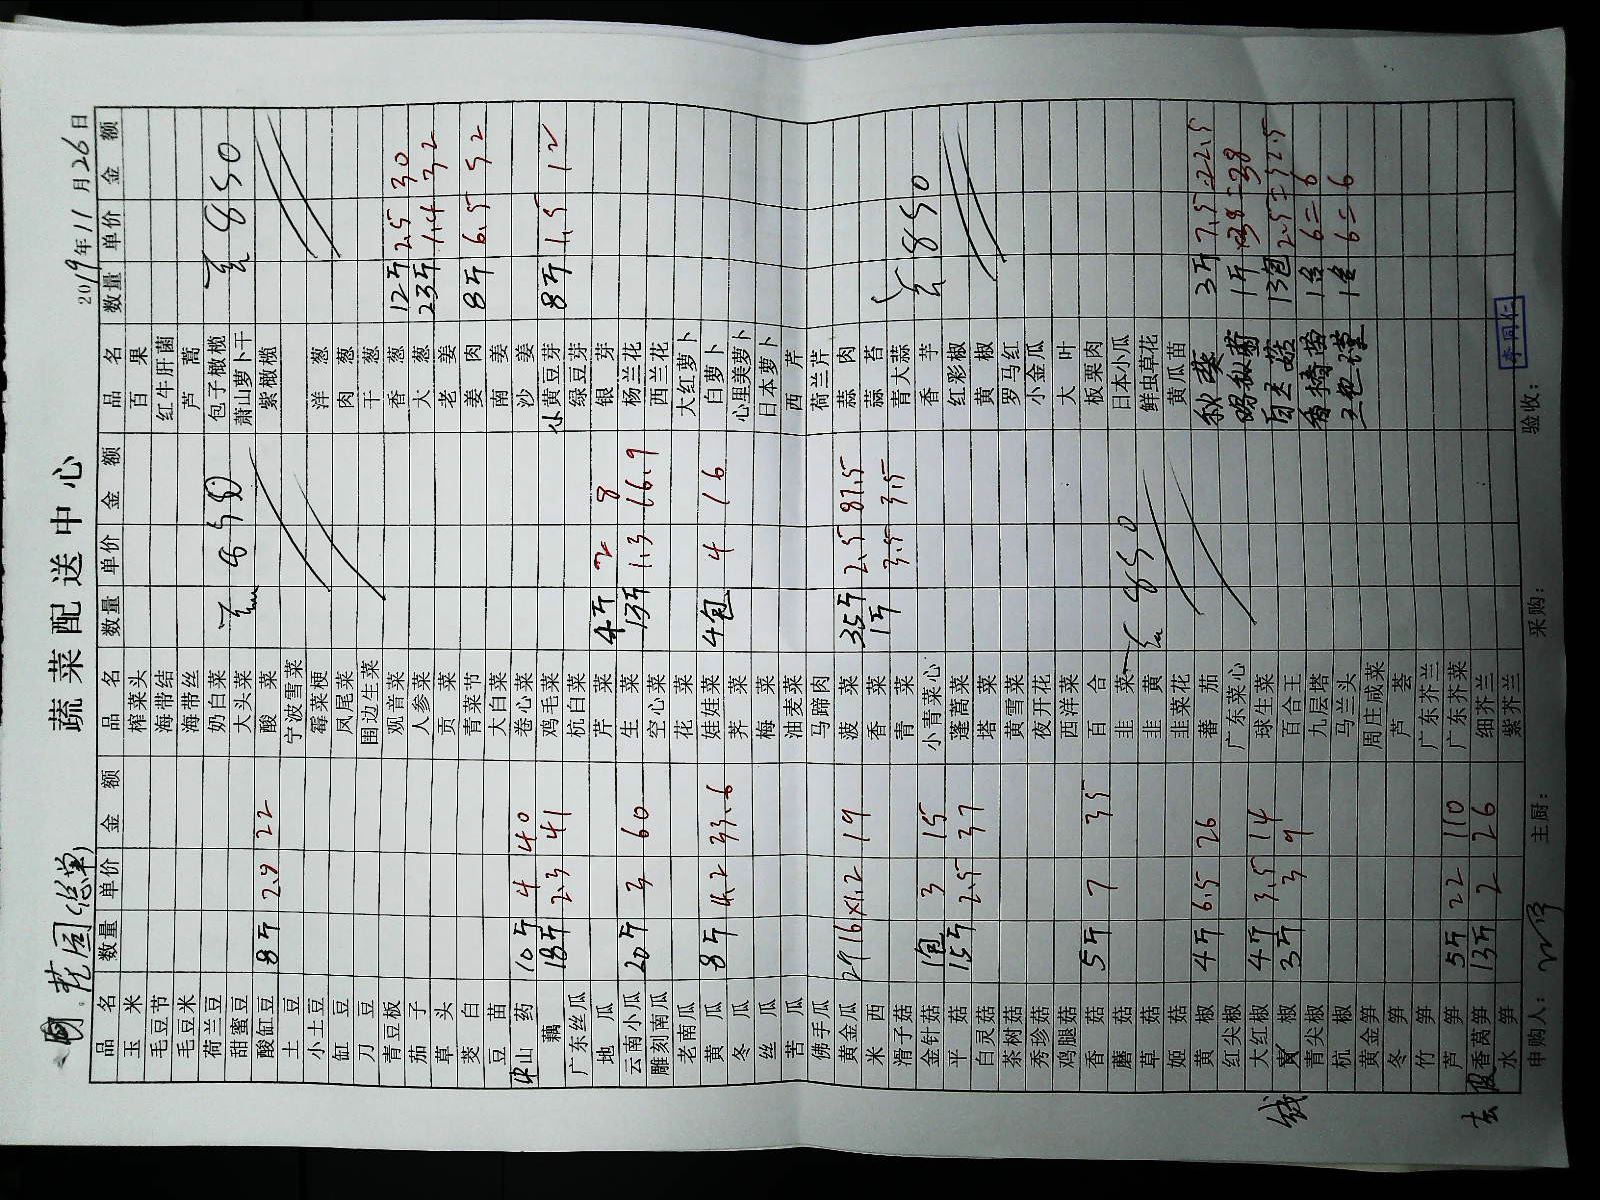 花园(总单)
蔬菜配送中心
2019年11月26日
品名 数量 单价 金额 品名 数量 单价 金额 品名 数量 单价 金额
玉米 榨菜头 百果
毛豆节 海带结 红牛肝菌
毛豆米 海带丝 芦蒿
荷兰豆 奶白菜 850 包子橄榄 850
甜蜜豆 大头菜 萧山萝卜干
酸缸豆 8斤 2.9 22 酸菜 紫橄榄
土豆 宁波雪菜
小土豆 霉菜梗 洋葱
缸豆 凤尾菜 肉葱
刀豆 围边生菜 干葱
青豆板 观音菜 香葱 12斤 2.5 30
茄子 人参菜 大葱 23斤 1.4 32
草头 贡菜 老姜
茭白 青菜节 姜肉 8斤 6.5 52
豆苗 大白菜 南姜
山药 10斤 4 40 卷心菜 沙姜
藕 18斤 2.3 41 鸡毛菜 小黄豆芽 8斤 1.5 12
广东丝瓜 杭白菜 绿豆芽
地瓜 芹菜 4斤 2 8 银芽
云南小瓜 20斤 3 60 生菜 13斤 1.3 16.9 杨兰花
雕刻南瓜 空心菜 西兰花
老南瓜 花菜 大红萝卜
黄瓜 8斤 4.2 33.6 娃娃菜 4包 4 16 白萝卜
冬瓜 荠菜 心里美萝卜
丝瓜 梅菜 日本萝卜
苦瓜 油麦菜 西芹
佛手瓜 马蹄肉 荷兰芹
黄金瓜 2个 16×1.2 19 菠菜 35斤 2.5 87.5 蒜肉
米西 香菜 1斤 3.5 3.5 蒜苔
滑子菇 青菜 青大蒜
金针菇 1包 3 15 小青菜心 香芋 850
平菇 15斤 2.5 37 蓬蒿菜 红彩椒
白灵菇 塔菜 黄椒
茶树菇 黄雪菜 罗马红
秀珍菇 夜开花 小金瓜
鸡腿菇 西洋菜 大叶
香菇 5斤 7 35 百合 板栗肉
蘑菇 韭菜 850 日本小瓜
草菇 韭黄 鲜虫草花
姬菇 韭菜花 黄瓜苗
黄椒 4斤 6.5 26 蕃茄 秋葵 3斤 7.5=22.5
红尖椒 广东菜心 1斤 38=38
大红椒 4斤 3.5 14 球生菜 白玉菇 13包 2.5=32.5
椒 3斤 3 9 百合王 香椿苗 1盒 6=6
青尖椒 九层塔 三色堇 1盒 6=6
杭椒 马兰头
黄金笋 周庄咸菜
冬笋 芦荟
竹笋 广东芥兰
芦笋 5斤 22 110 广东芥菜
去皮香莴笋 13斤 2 26 细芥兰
水笋 紫芥兰
申购人: 主厨: 采购: 验收: